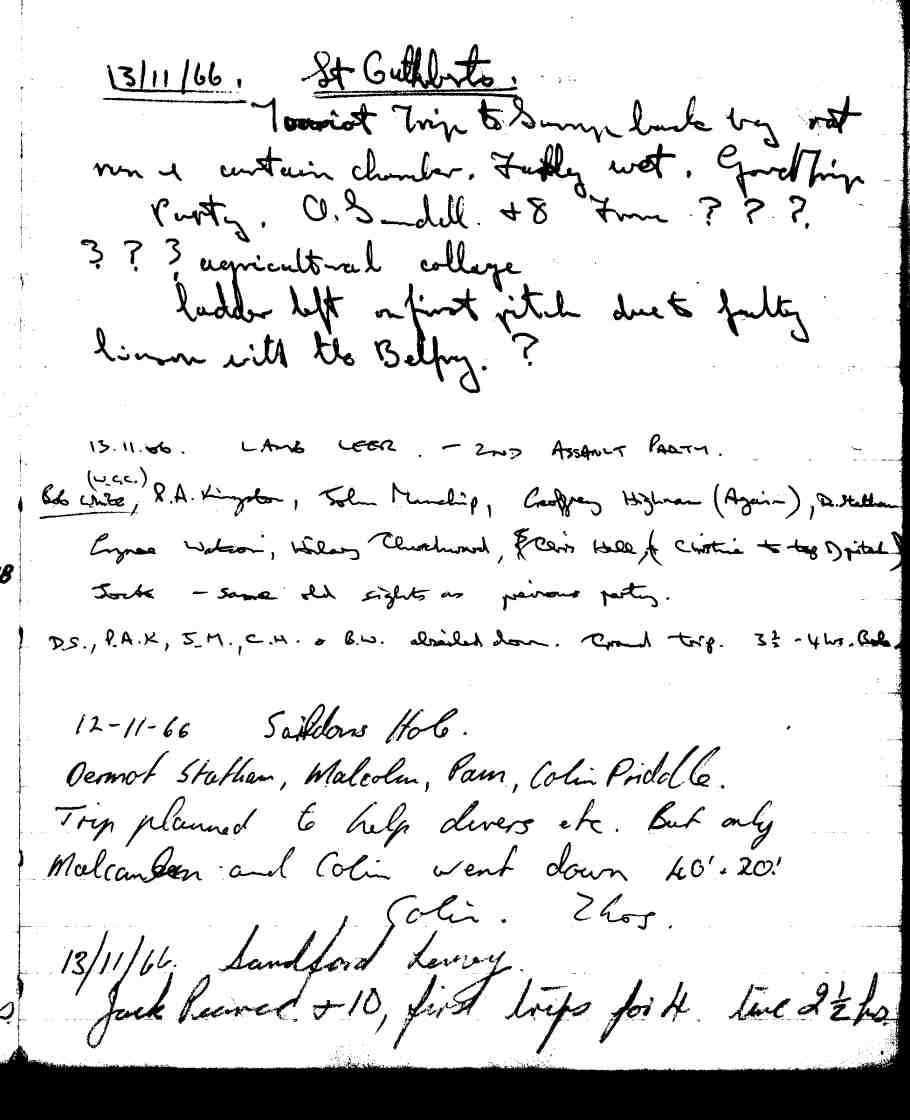 13/11/66. St Cuthberts.
Tourist Trip to Sump back by rat
run & curtain chamber. Fairly wet. Good Trip
Party. O. S 8 From ? ? ?
? ? ? agricultural college
ladder left on first pitch due to faulty
liason with the Belfry. ?
13.11.66. LAMB LEER. - 2ND ASSAULT PARTY.
Bob White, (W.G.C.) R.A. Kingston, John Manship, Geoffrey Highman (Again), D. Statham
Watson, Hilary Churchward, Chris Hall, & Christine to top of pitch)
- same old sights as previous party.
D.S., R.A.K, J.M., C.H. & B.W. abseiled down. Grand trip. 3½ - 4 hrs. Bob.
12-11-66 Swildons Hole.
Dermot Statham, Malcolm, Pam, Colin Priddle.
Trip planned to help divers etc. But only
Malcolm and Colin went down 40' & 20'.
Colin. 2hrs.
13/11/66. Sandford Levvy.
Jack Pearce + 10, first trips for 4. time 2½ hrs